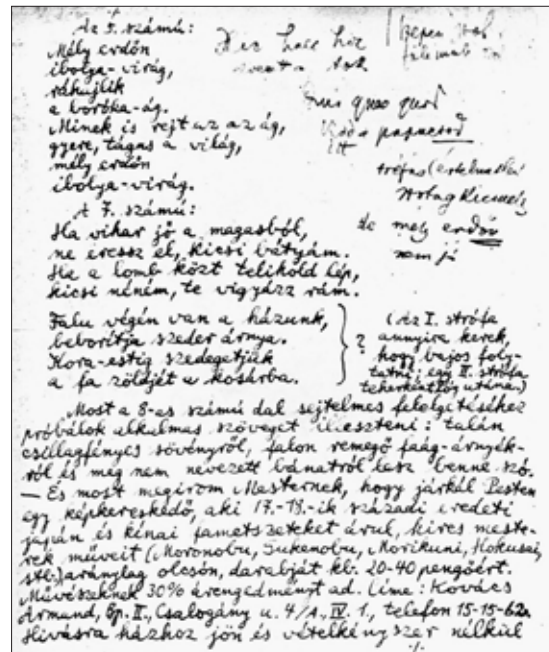 Az 5. számú:
Mély erdőn
ibolya-virág,
ráhujlik
a boróka-ág.
Minek is rejt az az ág,
gyere, tágas a világ,
mély erdőn
ibolya-virág.
A 7. számú:
Ha vihar jő a magasból,
ne eressz el, kicsi bátyám.
Ha a lomb közt telihold lép,
kicsi néném, te vigyázz rám.
Falu végén van a házunk,
beborítja szeder árnya.
Kora-estig szedegetjük
a fa zöldjét a kosárba.
?
(Az I. strófa
annyira kerek,
hogy bajos foly-
tatni; egy II. strófa
teherként lóg utána.)
de mély erdőn
nem jó
Most a 8-as számú dal sejtelmes felelgetéséhez
próbálok alkalmas szöveget illeszteni: talán
csillagfényes sövényről, falon remegő faág-árnyék-
ról és meg nem nevezett bánatról lesz benne szó.
— És most megírom Mesternek, hogy járkál Pesten
egy képkereskedő, aki 17.-19.-ik századi eredeti
japán és kínai fametszeteket árul, híres meste-
rek műveit (Moronobu, Sukenobu, Morikuni, Hokusai,
stb.) aránylag olcsón, darabját kb. 20-40 pengőért.
Művészeknek 30% árengedményt ad. Címe: Kovács
Ármand, Bp. II., Csalogány u. 4/A., IV. 1., telefon 15-15-62.
Hívásra házhoz jön és vételkényszer nélkül
./.